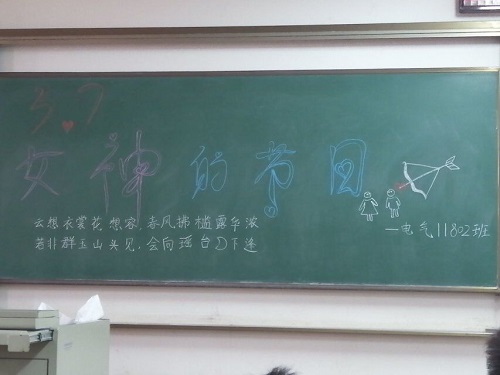 3.7
女神的节日
云想衣裳花想容,春风拂槛露华浓
若非群玉山头见,会向瑶台月下逢
—电气11802班